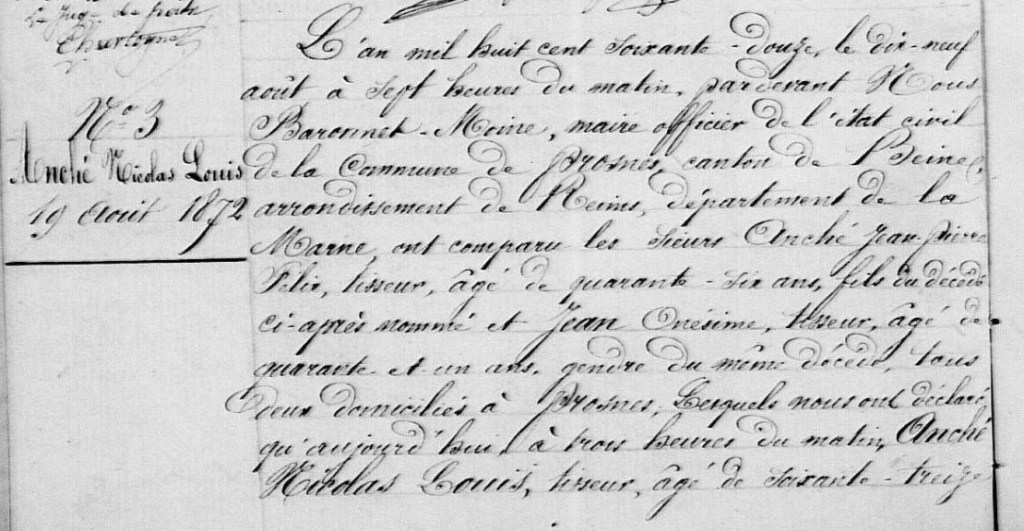 Le Juge de paix
N.o 3
Anché Nicolas Louis
19 Août 1872
L'an mil huit cent soixante-douze, le dix-neuf
août à sept heures du matin, pardevant Nous
Baronnet-Moine, maire officier de l'état civil
de la Commune de Prosnes, canton de Beine,
arrondissement de Reims, département de la
Marne, ont comparu les sieurs Anché Jean-Pierre
Felix, tisseur, âgé de quarante-six ans, fils du décédé
ci-après nommé et Jean Onésime, tisseur, âgé de
quarante et un ans, gendre du même décédé, tous
deux domiciliés à Prosnes; Lesquels nous ont déclaré
qu'aujourd'hui, à trois heures du matin, Anché
Nicolas Louis, tisseur, âgé de soixante-treize